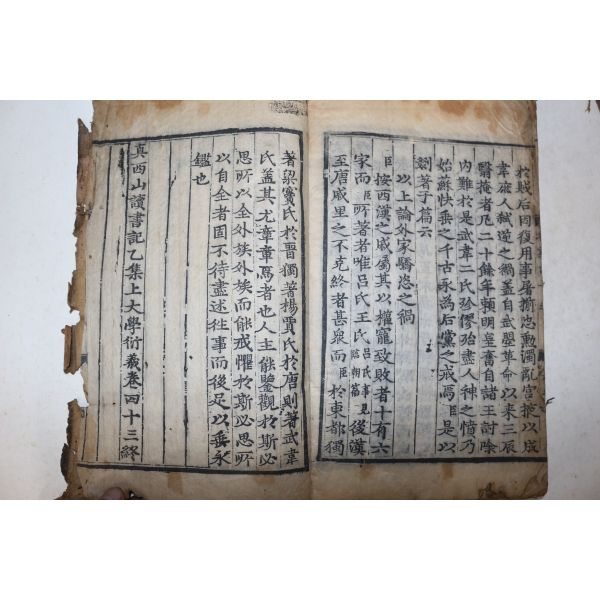 於賊后因復用事屠撕忠勲濁亂宫掖以成
韋庶人弑逆之禍盖自武曌革命以來三辰
翳掩者凡二十餘年頼明皇奮自諸王討除
内難於是武韋二氏殄僇殆盡人神之憤乃
始蘇快垂之千古永為后黨之戒焉臣是以
劉著于篇云
以上論外家驕恣之禍
臣按西漢之戚屬其以權寵致敗者十有六
家而臣所著者唯吕氏王氏吕氏事見臨朝篇後漢
至唐戚里之不克終者甚衆而臣於東都獨
著梁竇氏於晋獨著楊賈氏於唐則著武韋
氏盖其尤章章焉者也人主能鑒觀於斯必
思所以全外族外族而能戒懼於斯必思所
以自全者固不待盡述往事而後足以垂永
鑑也
真西山讀書記乙集上大學衍義卷四十三終